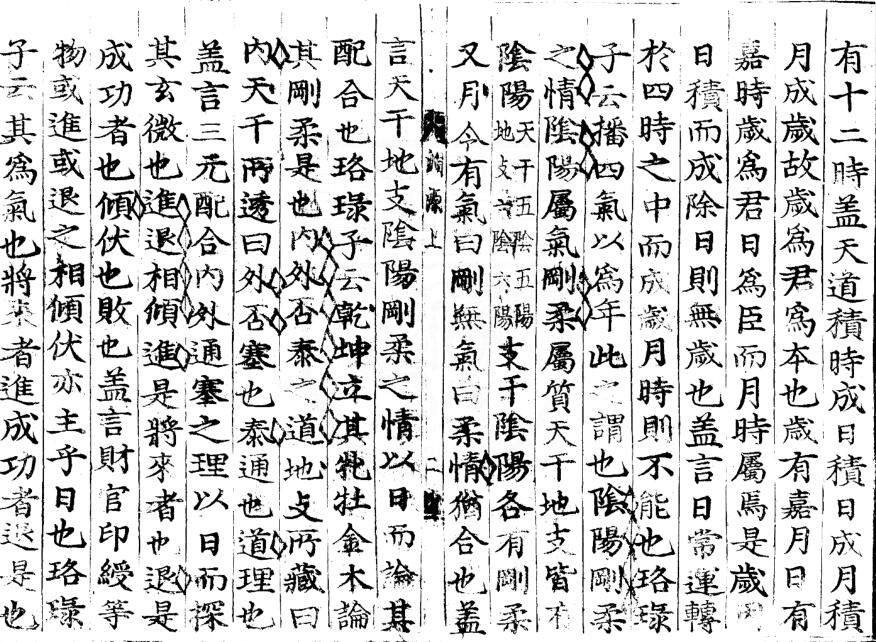 有十二時盖天道積時成日積日成月積
月成歲故歲爲君爲本也歲有嘉月日有
嘉時歲爲君日爲臣而月時屬焉是歲
日積而成除日則無歲也盖言日常運轉
於四時之中而成歲月時則不能也珞琭
子云播四氣以爲年此之謂也陰陽剛柔
之情陰陽屬氣剛柔屬質天干地支皆有
陰陽天干五陰五陽地支六陰六陽支干陰陽各有剛柔
又月令有氣曰剛無氣曰柔情猶合也盖
淵源上 二
言天干地支陰陽剛柔之情以日而論其
配合也珞琭子云乾坤立其牝牡金木論
其剛柔是也内外否泰之道地支所藏曰
内天干所透曰外否塞也泰通也道理也
盖言三元配合内外通塞之理以日而探
其玄微也進退相傾進是將來者也退是
成功者也傾伏也敗也盖言財官印綬等
物或進或退之相傾伏亦主乎日也珞琭
子云其爲氣也將來者進成功者退是也